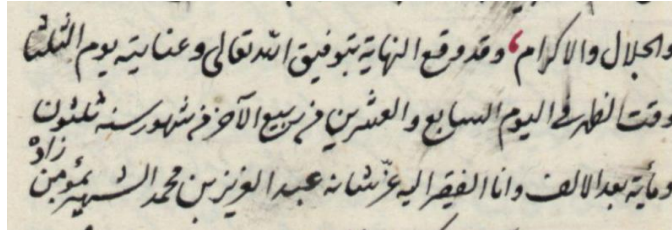 والجلال والاكرام، وقد وقع النهاية بتوفيق الله تعالى وعنايته يوم الثلثا
وقت الظهر في اليوم السابع والعشرين من ربيع الآخر من شهور سنه ثلثون
ومأية بعد الالف وانا الفقير اليه عز شانه عبد العزيز بن محمد الشهير بمؤمن زاده